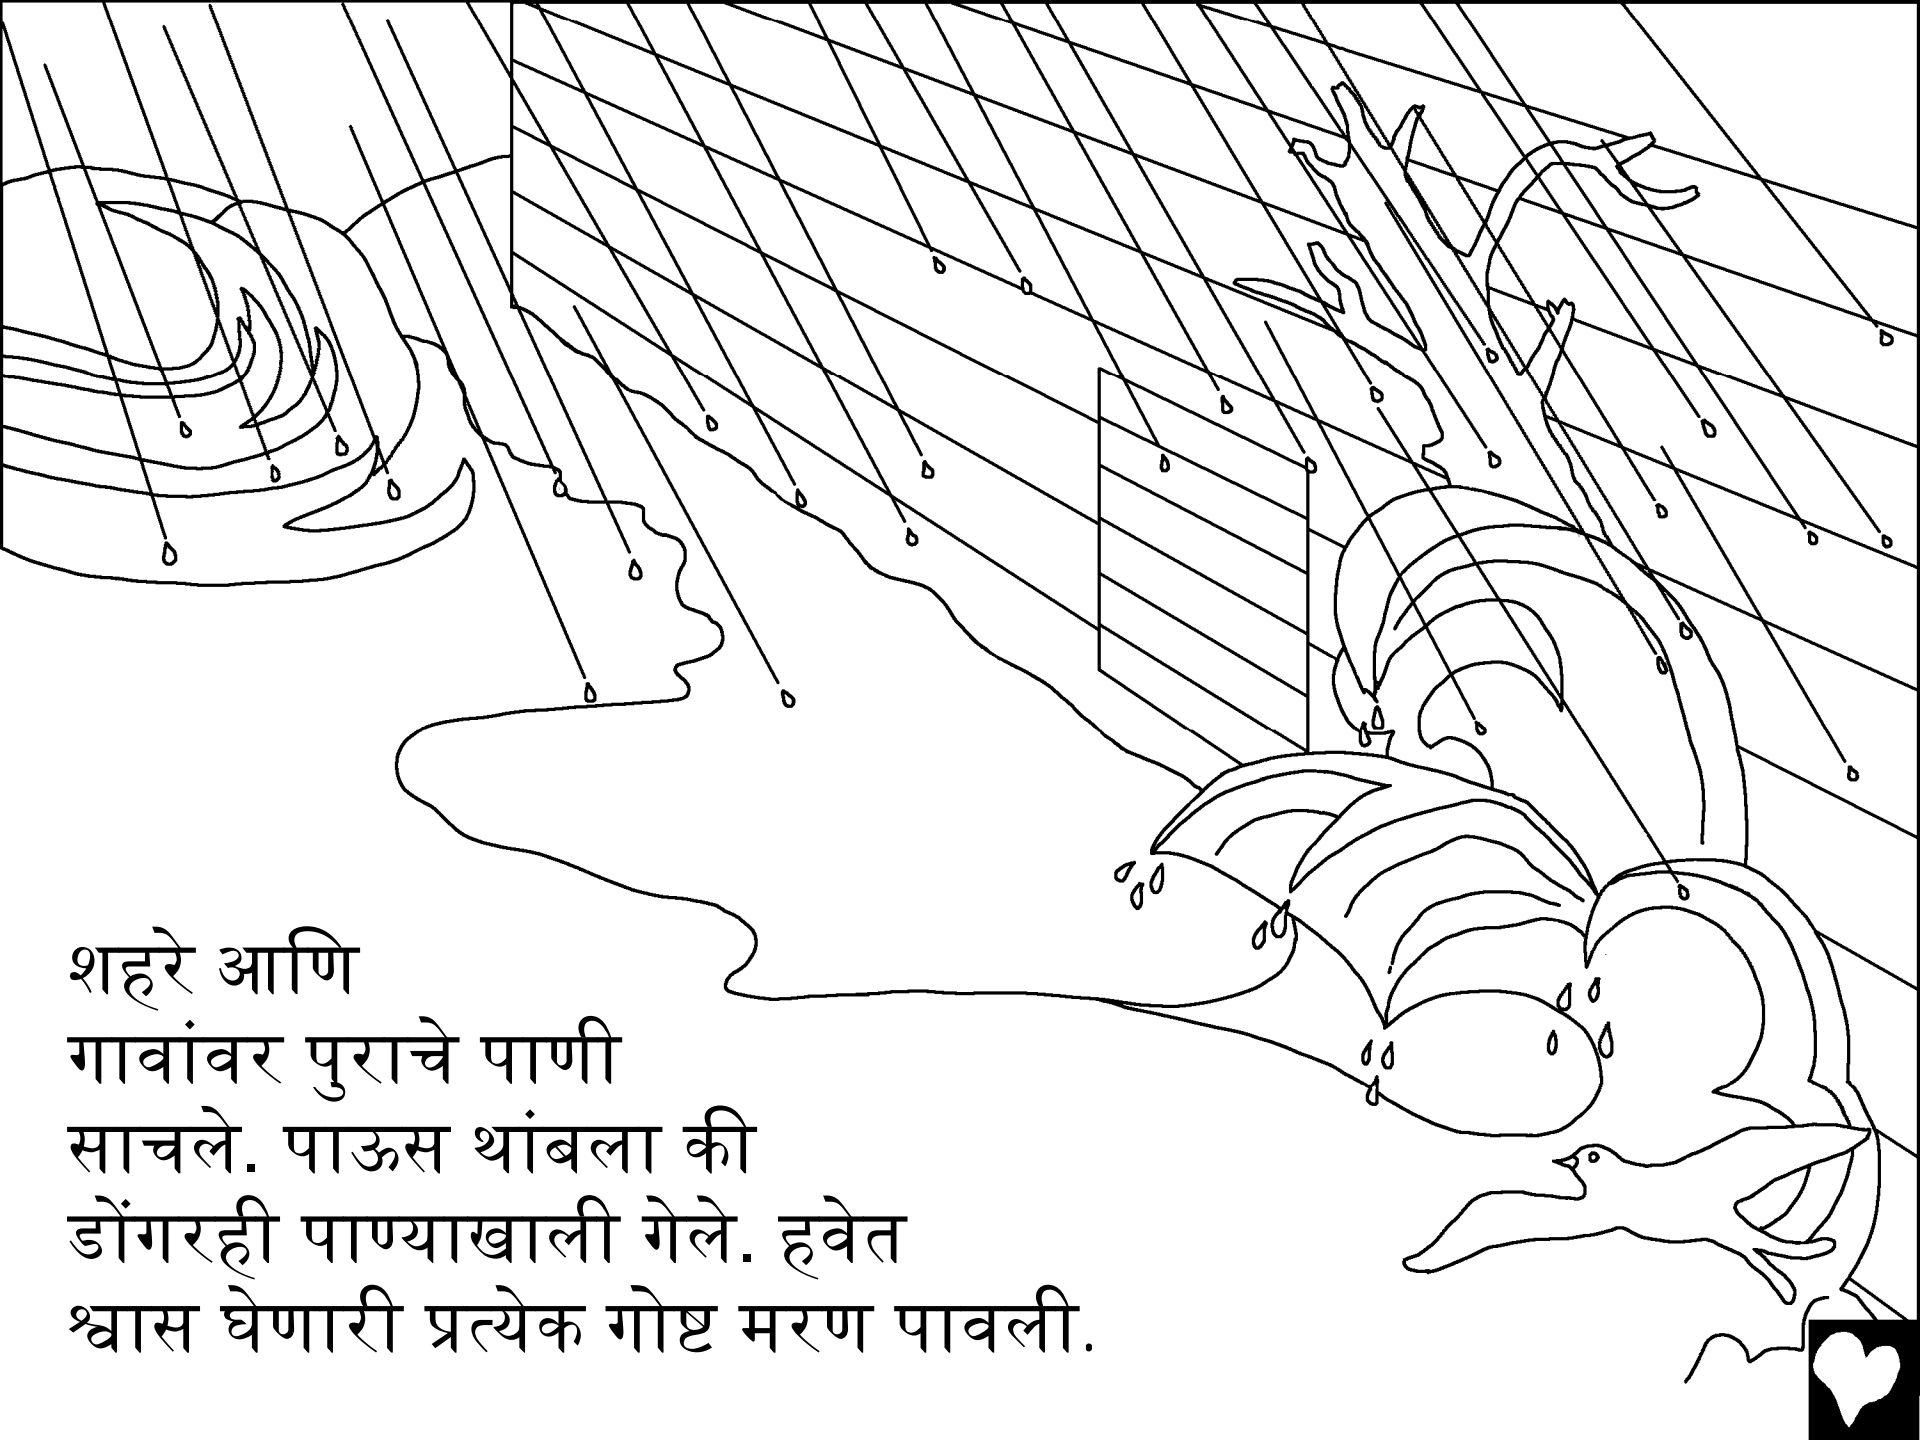 शहरे आणि
गावांवर पुराचे पाणी
साचले. पाऊस थांबला की
डोंगरही पाण्याखाली गेले. हवेत
श्वास घेणारी प्रत्येक गोष्ट मरण पावली.